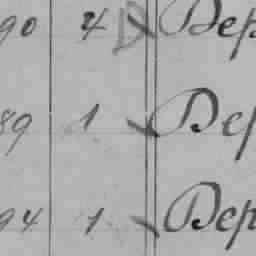 90 4 Дер
89 1 Дер
94 1 Дер